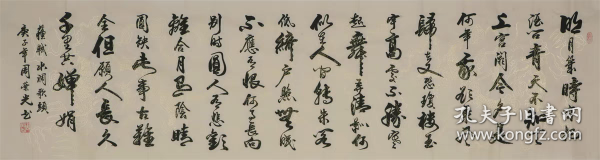 明月幾時有
把酒問青天不知天
上宮闕今夕是
何年我欲乘風
歸去又恐瓊樓玉
宇高處不勝寒
起舞弄清影何
似在人間轉朱閣
低綺戶照無眠
不應有恨何事長向
別時圓人有悲歡
離合月有陰晴
圓缺此事古難
全但願人長久
千里共嬋娟
蘇軾水調歌頭
庚子年周景光书
孔夫子旧书网
www.kongfz.com